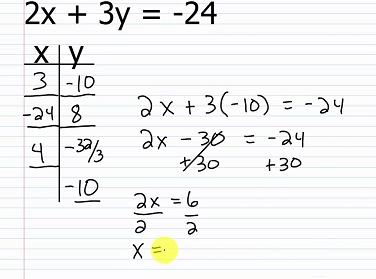 2x + 3y = -24
x y
3 -10
-24 8
4 -32/3
-10
2x + 3(-10) = -24
2x - 30 = -24
+30 +30
2x = 6
2 2
x =